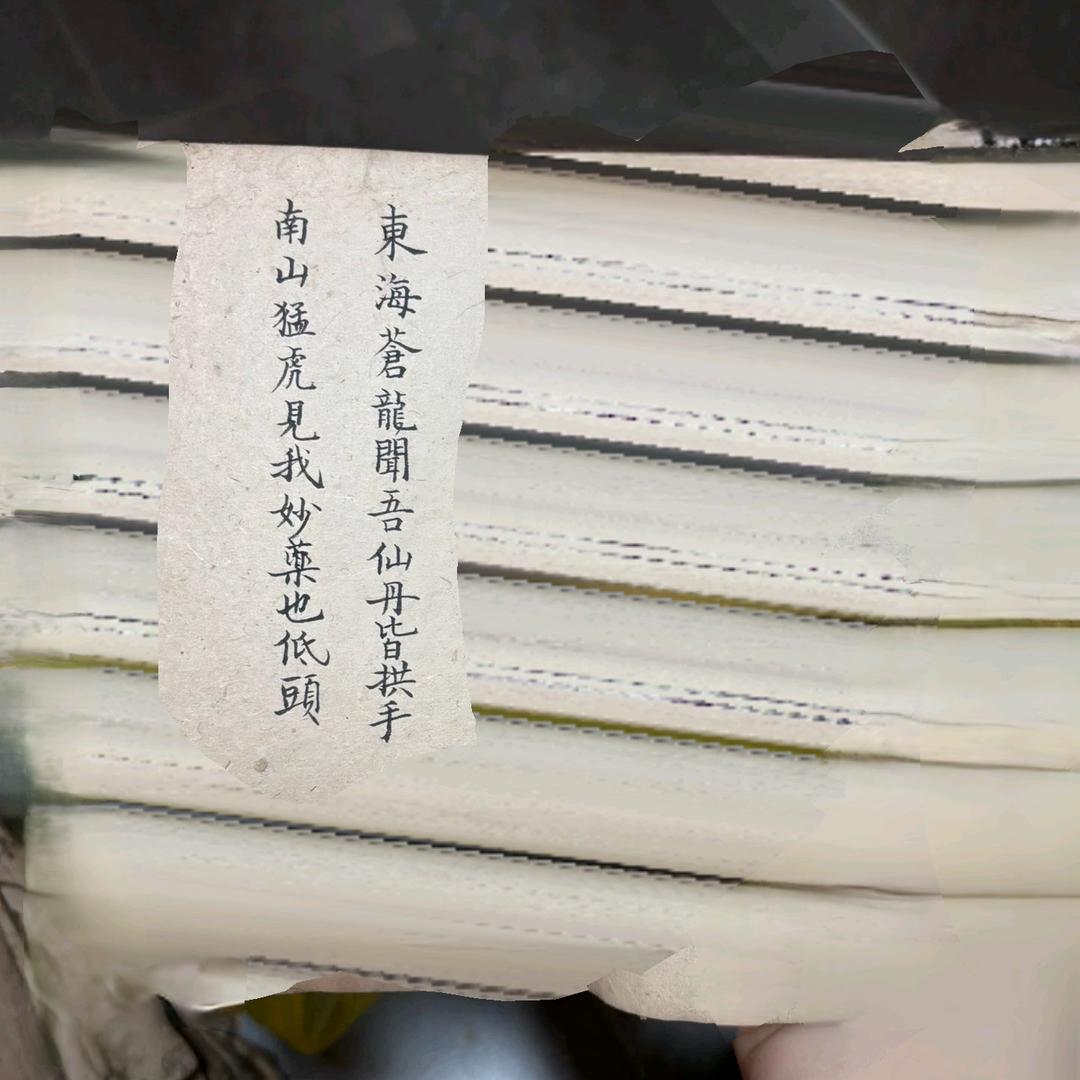 東海蒼龍聞吾仙丹皆拱手
南山猛虎見我妙藥也低頭